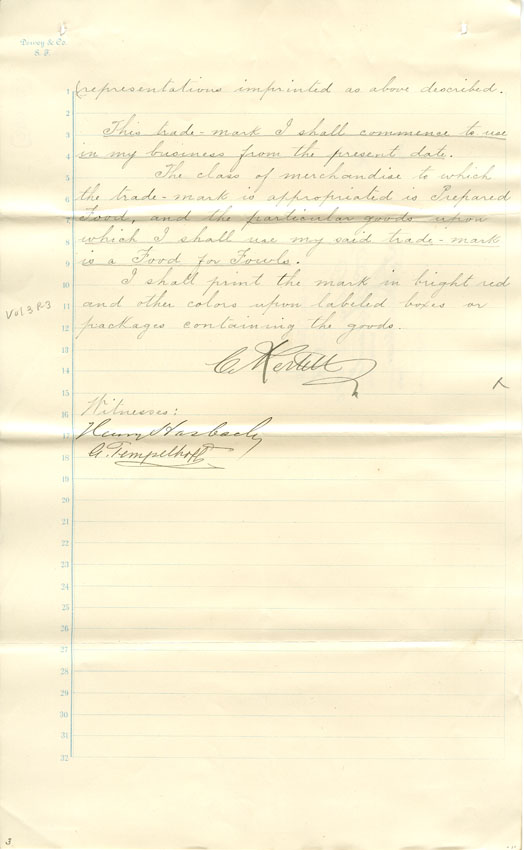 Dewey & Co.
S. F.
representations imprinted as above described.
This trade-mark I shall commence to use
in my business from the present date.
The class of merchandise to which
the trade-mark is appropriated is Prepared
Food, and the particular goods upon
which I shall use my said trade-mark
is a Food for Fowls.
I shall print the mark in bright red
and other colors upon labeled boxes or
packages containing the goods.
Vol 3 P.3
C. Hertell
Witnesses:
Henry Hasbach
G. Tempelhoff
1
2
3
4
5
6
7
8
9
10
11
12
13
14
15
16
17
18
19
20
21
22
23
24
25
26
27
28
29
30
31
32
3